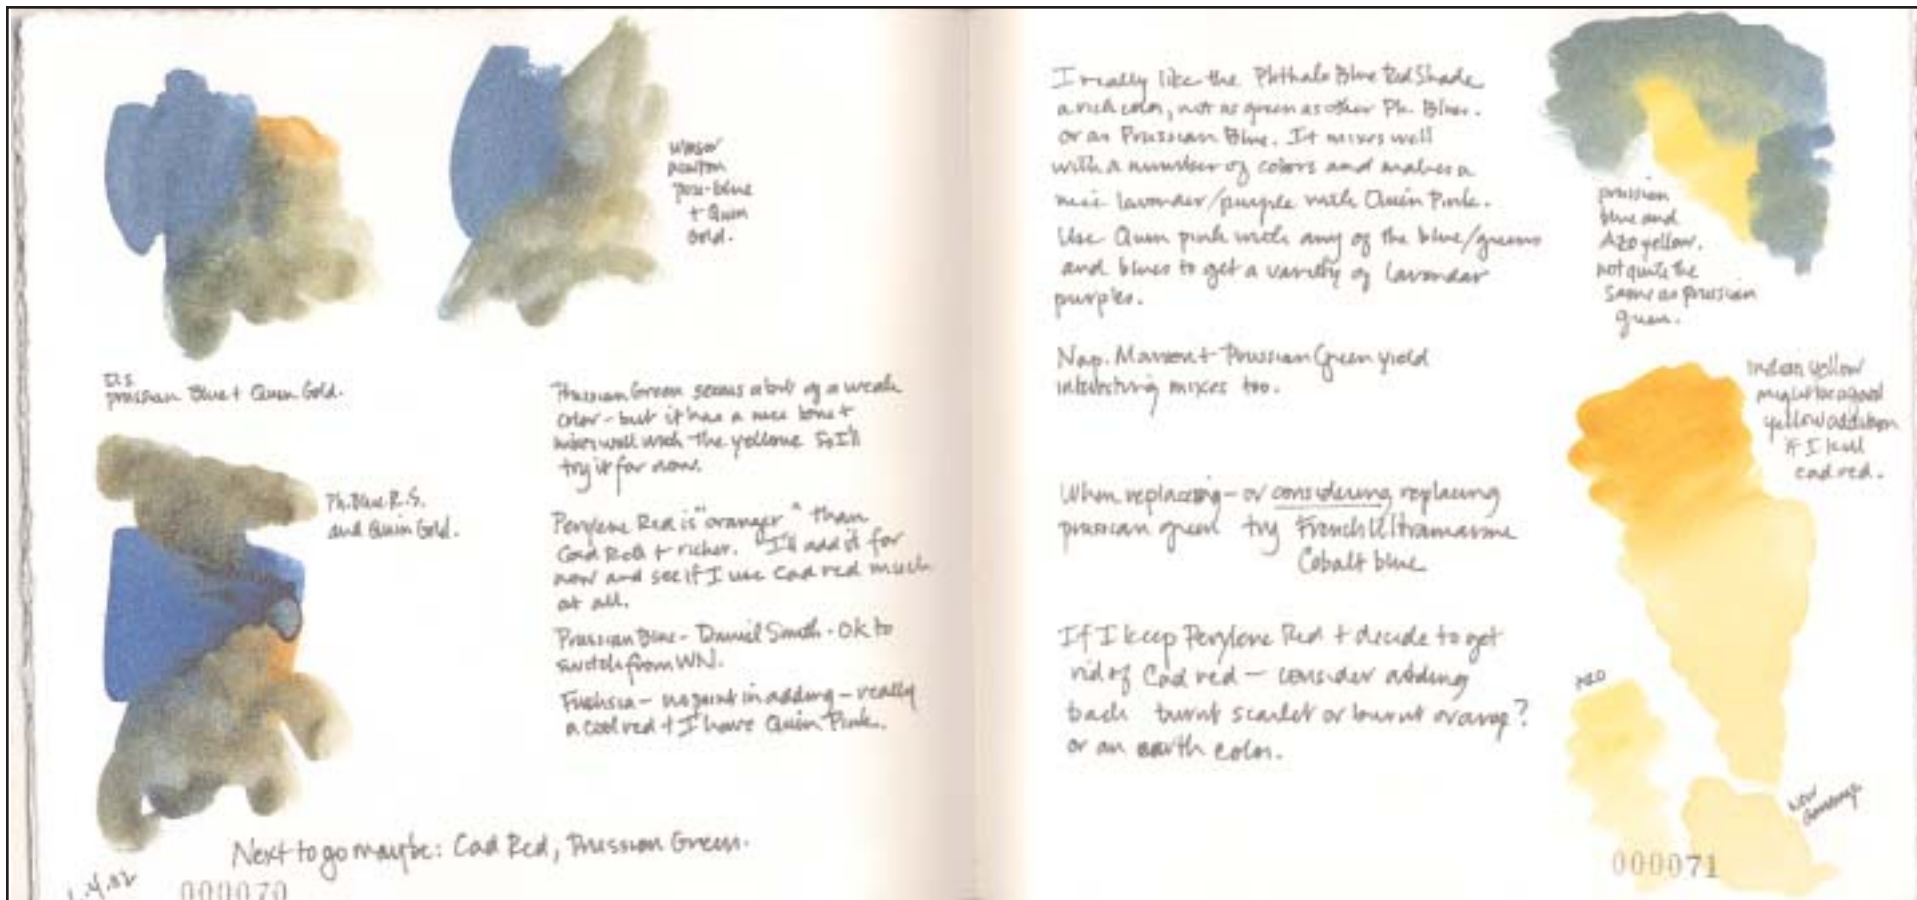 Winsor
newton
+ Quin
Gold.
D.S.
Prussian Blue + Quin Gold.
Ph. Blue R.S.
and Quin Gold.
Prussian Green seems a bit of a weak
color - but it has a nice tone +
mixes well with the yellows so I'll
try it for now.
Perylene Red is "oranger" than
Cad Red + richer. I'll add it for
now and see if I use Cad red much
at all.
Prussian Blue - Daniel Smith - OK to
switch from WN.
Fuchsia - no point in adding - really
a cool red + I have Quin Pink.
Next to go maybe: Cad Red, Prussian Green.
000070
I really like the Phthalo Blue Red Shade
a rich color, not as green as other Ph. Blues.
or as Prussian Blue. It mixes well
with a number of colors and makes a
nice lavender/purple with Quin Pink.
Use Quin pink with any of the blue/greens
and blues to get a variety of lavendar
purples.
Nap. Maroon + Prussian Green yield
interesting mixes too.
When replacing - or considering replacing
prussian green try French Ultramarine
Cobalt blue
If I keep Perylene Red + decide to get
rid of Cad red - consider adding
back burnt scarlet or burnt orange?
or an earth color.
prussian
blue and
Azo yellow.
not quite the
same as prussian
green.
Indian yellow
might be a good
yellow addition
if I kill
cad red.
AZO
New
Gamboge
000071